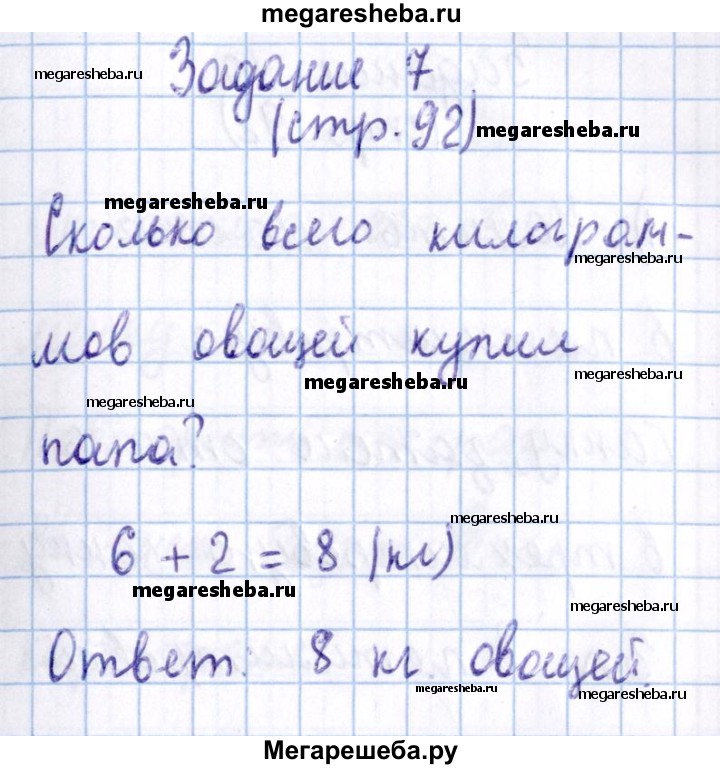 megaresheba.ru
Задание 7
megaresheba.ru
(стр. 92)
megaresheba.ru
megaresheba.ru
Сколько всего килограм-
megaresheba.ru
мов овощей купил
megaresheba.ru
megaresheba.ru
megaresheba.ru
папа?
megaresheba.ru
6 + 2 = 8 (кг)
megaresheba.ru
megaresheba.ru
Ответ: 8 кг овощей.
megaresheba.ru
megaresheba.ru
Мегарешеба.ру